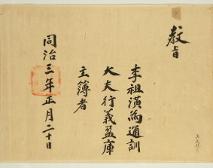 敎旨
李祖 為通訓
大夫行義盈庫
主簿者
同治三年正月二十日